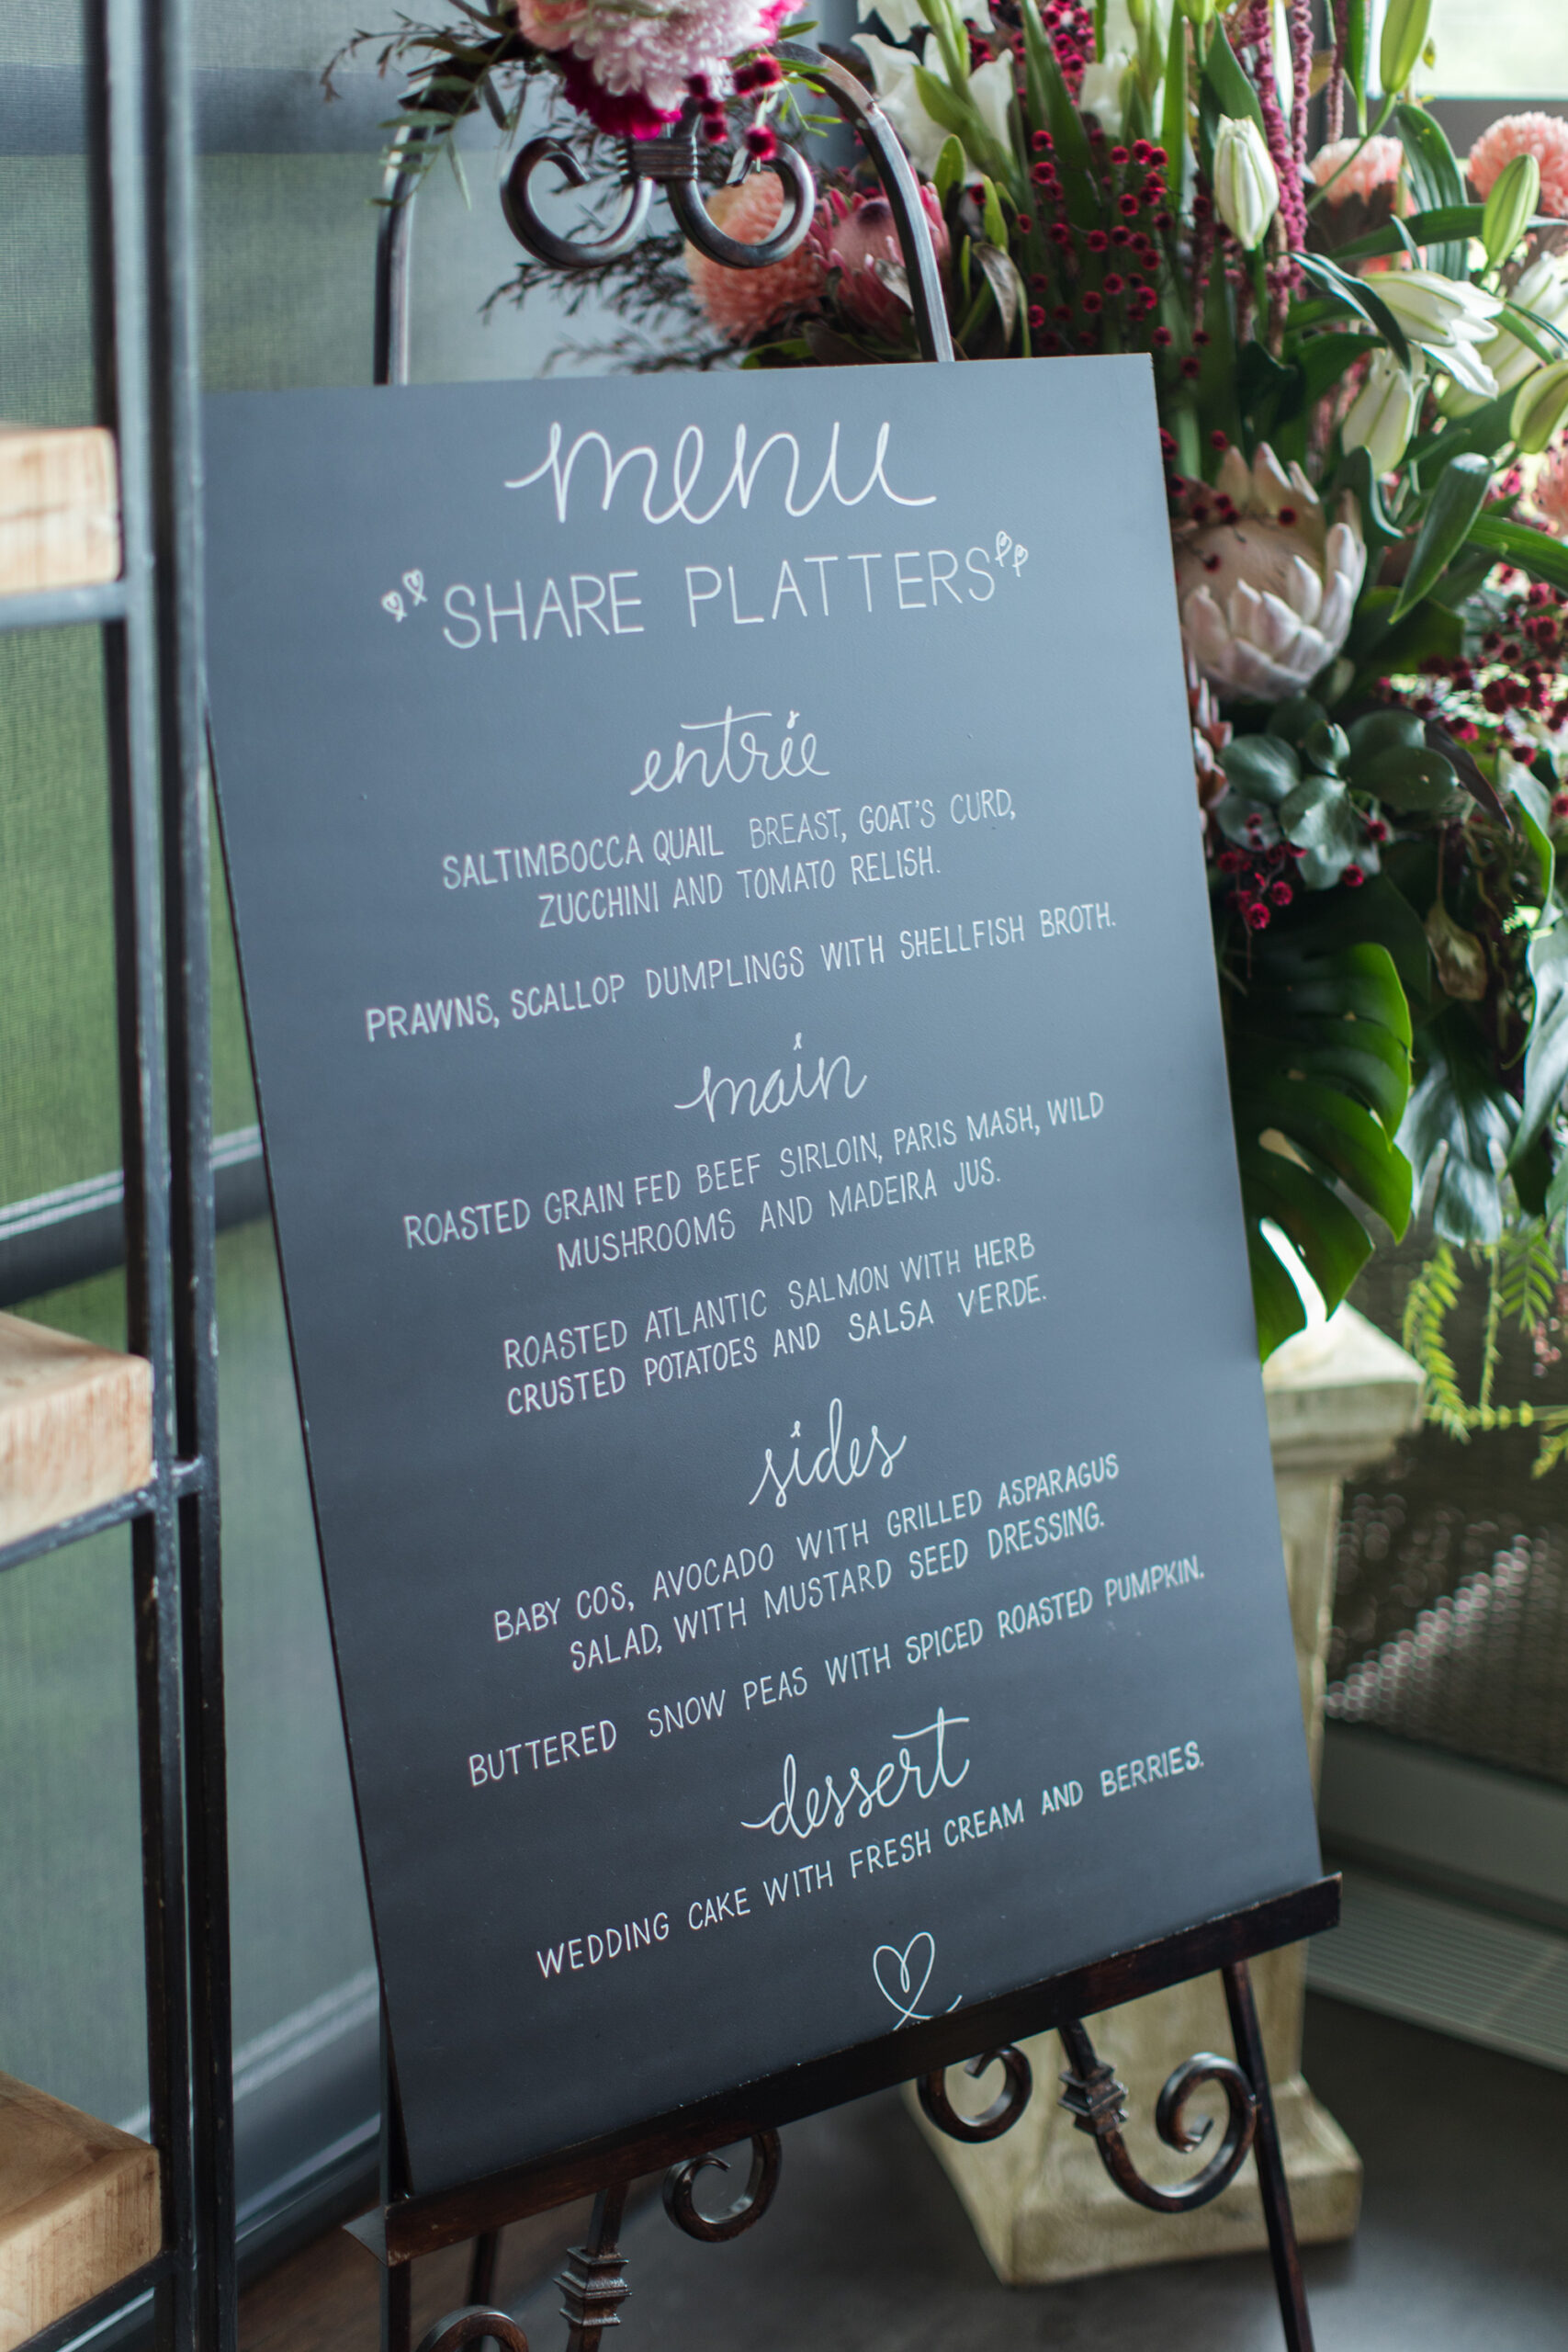 menu
SHARE PLATTERS
entrée
SALTIMBOCCA QUAIL BREAST, GOAT'S CURD,
ZUCCHINI AND TOMATO RELISH.
PRAWNS, SCALLOP DUMPLINGS WITH SHELLFISH BROTH.
main
ROASTED GRAIN FED BEEF SIRLOIN, PARIS MASH, WILD
MUSHROOMS AND MADEIRA JUS.
ROASTED ATLANTIC SALMON WITH HERB
CRUSTED POTATOES AND SALSA VERDE.
sides
BABY COS, AVOCADO WITH GRILLED ASPARAGUS
SALAD, WITH MUSTARD SEED DRESSING.
BUTTERED SNOW PEAS WITH SPICED ROASTED PUMPKIN.
dessert
WEDDING CAKE WITH FRESH CREAM AND BERRIES.